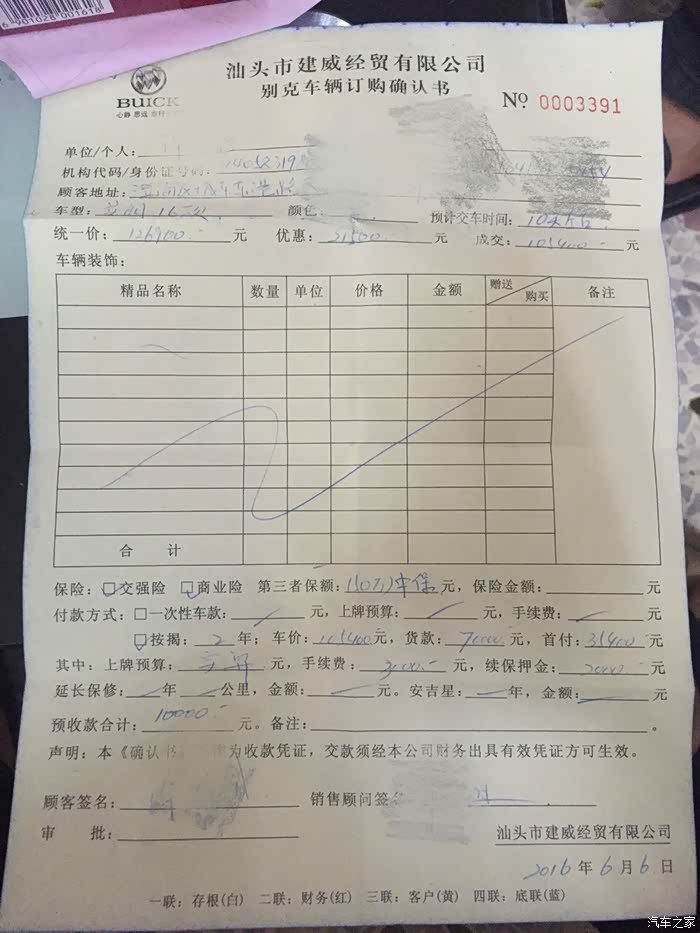 6 901028 001618
汕头市建威经贸有限公司
别克车辆订购确认书
BUICK
心静 思远
№ 0003391
单位/个人:
机构代码/身份证号码:
顾客地址:
车型: 颜色: 预计交车时间: 10天左右
统一价: 126900 元 优惠: 21500 元 成交: 105400 元
车辆装饰:
精品名称 数量 单位 价格 金额 赠送 购买 备注
合 计
保险: ☑交强险 ☑商业险 第三者保额: 元, 保险金额: 元
付款方式: □一次性车款: 元, 上牌预算: 元, 手续费: 元
☑按揭: 2 年; 车价: 105400 元, 货款: 70000 元, 首付: 35400 元
其中: 上牌预算: 元, 手续费: 3000 元, 续保押金: 2000 元
延长保修: 年 公里, 金额: 元。安吉星: 年, 金额: 元
预收款合计: 10000 元。备注: 。
声明: 本《确认书 为收款凭证, 交款须经本公司财务出具有效凭证方可生效。
顾客签名: 销售顾问签名
审 批: 汕头市建威经贸有限公司
2016 年 6 月 6 日
一联: 存根(白) 二联: 财务(红) 三联: 客户(黄) 四联: 底联(蓝)
汽车之家